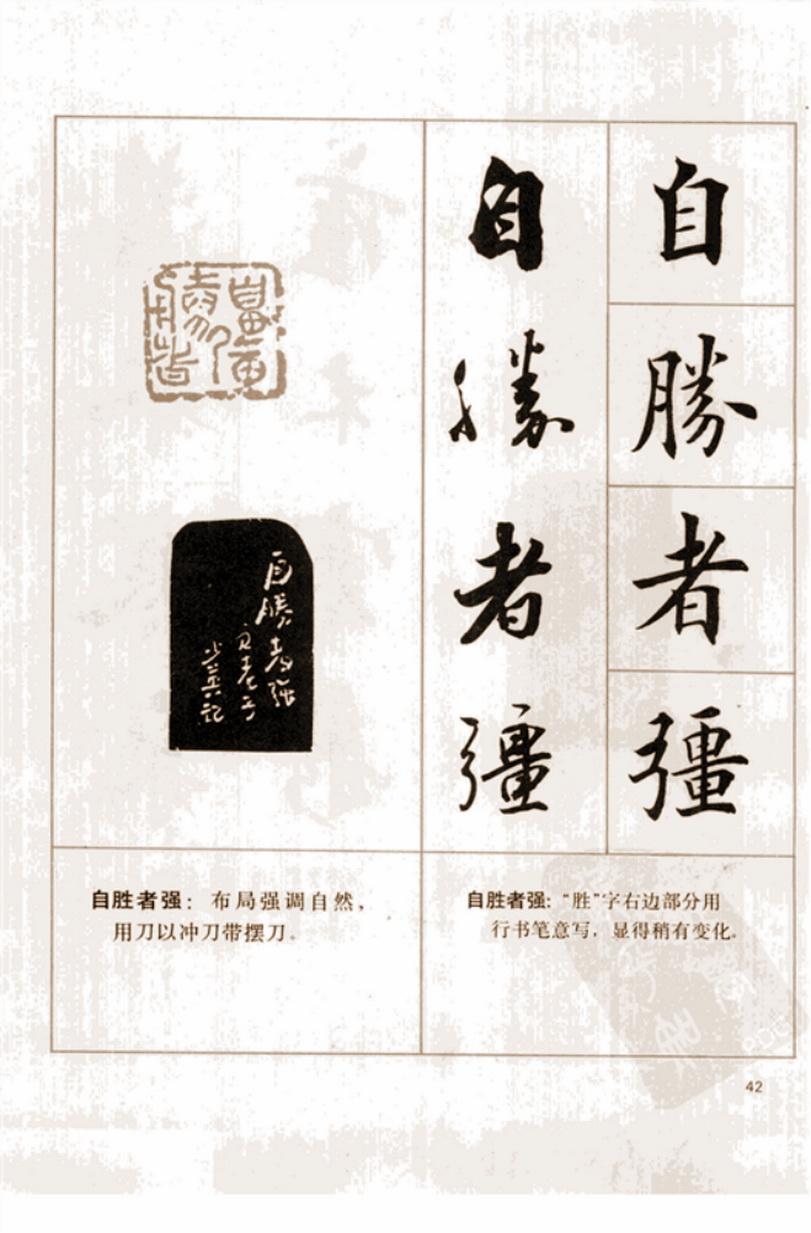 自
勝
者
彊
自
勝
者
彊
自勝者強
少英記
自胜者强：布局强调自然，
用刀以冲刀带摆刀。
自胜者强：“胜”字右边部分用
行书笔意写，显得稍有变化。
42